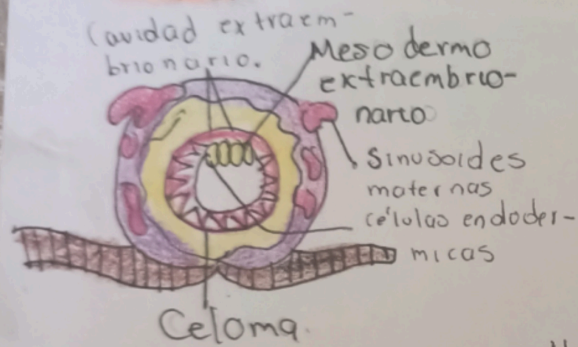 Cavidad extraem-
brionario.
Mesodermo
extraembrio-
nario
Sinusoides
maternas
células endoder-
micas
Celoma.